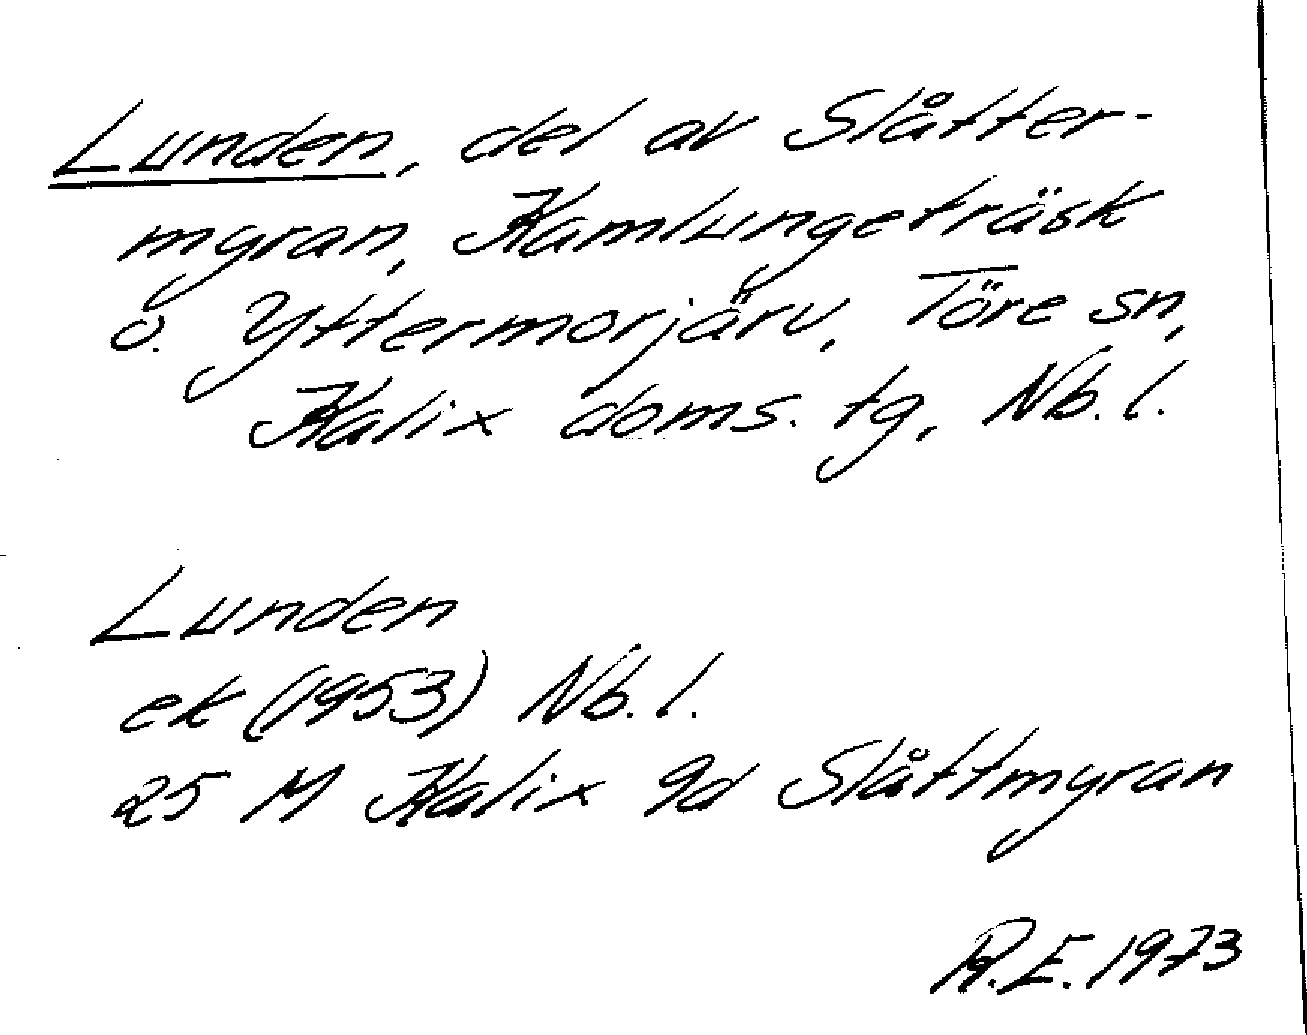 Lunden, del av Slåtter-
myran, Kamlungeträsk
o. Yttermorjärv, Töre sn,
Kalix doms. tg, Nb. l.
Lunden
ek (1953) Nb. l.
25 M Kalix 9d Slåttmyran
R.E. 1973